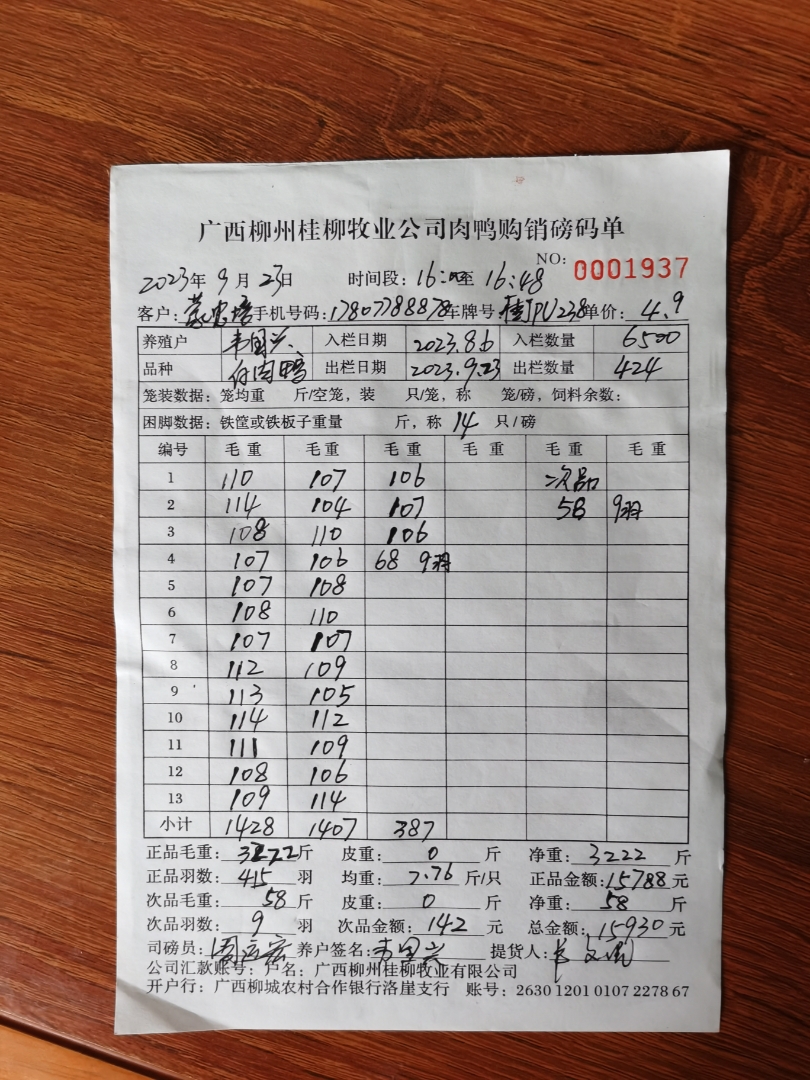 广西柳州桂柳牧业公司肉鸭购销磅码单
NO: 0001937
2023年 9月 23日 时间段: 16: 至 16:48
客户: 手机号码: 17807788878 车牌号 桂JPU238 单价: 4.9
养殖户 韦国兴 入栏日期 2023.8.6 入栏数量 6500
品种 白肉鸭 出栏日期 2023.9.23 出栏数量 424
笼装数据: 笼均重 斤/空笼, 装 只/笼, 称 笼/磅, 饲料余数:
困脚数据: 铁筐或铁板子重量 斤, 称 14 只/磅
编号 毛重 毛重 毛重 毛重 毛重 毛重
1 110 107 106 次品
2 114 104 107 58 9羽
3 108 110 106
4 107 106 68 9羽
5 107 108
6 108 110
7 107 107
8 112 109
9 113 105
10 114 112
11 111 109
12 108 106
13 109 114
小计 1428 1407 387
正品毛重: 3222斤 皮重: 0 斤 净重: 3222 斤
正品羽数: 415 羽 均重: 7.76 斤/只 正品金额: 15788 元
次品毛重: 58斤 皮重: 0 斤 净重: 58 斤
次品羽数: 9 羽 次品金额: 142 元 总金额: 15930 元
司磅员: 养户签名: 韦国兴 提货人:
公司汇款账号: 户名: 广西柳州桂柳牧业有限公司
开户行: 广西柳城农村合作银行洛崖支行 账号: 2630 1201 0107 2278 67